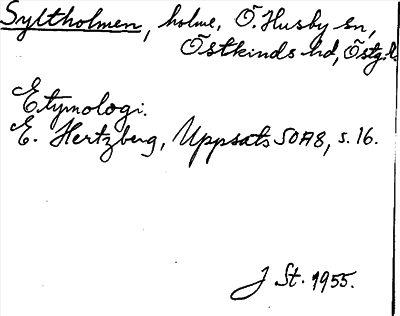 Syltholmen, holme, Ö. Husby sn,
Östkinds hd, Östg.l.
Etymologi.
E. Hertzberg, Uppsats SOA8, s. 16.
J St. 1955.